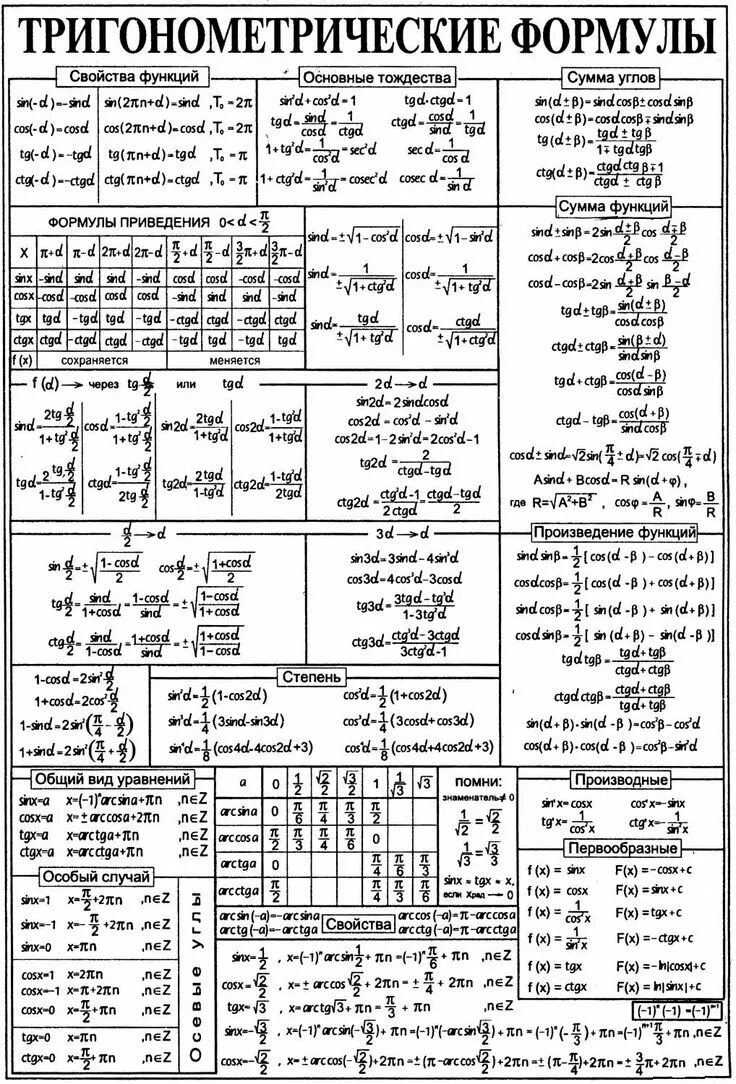 ТРИГОНОМЕТРИЧЕСКИЕ ФОРМУЛЫ
Свойства функций
sin(-α)=-sinα sin(2πn+α)=sinα ,T₀=2π
cos(-α)=cosα cos(2πn+α)=cosα ,T₀=2π
tg(-α)=-tgα tg(πn+α)=tgα ,T₀=π
ctg(-α)=-ctgα ctg(πn+α)=ctgα ,T₀=π
Основные тождества
sin²α+cos²α=1 tgα·ctgα=1
tgα=sinα/cosα=1/ctgα ctgα=cosα/sinα=1/tgα
1+tg²α=1/cos²α=sec²α secα=1/cosα
1+ctg²α=1/sin²α=cosec²α cosecα=1/sinα
Сумма углов
sin(α±β)=sinαcosβ±cosαsinβ
cos(α±β)=cosαcosβ∓sinαsinβ
tg(α±β)=(tgα±tgβ)/(1∓tgαtgβ)
ctg(α±β)=(ctgαctgβ∓1)/(ctgα±ctgβ)
ФОРМУЛЫ ПРИВЕДЕНИЯ 0<α<π/2
X π+α π-α 2π+α 2π-α π/2+α π/2-α 3/2π+α 3/2π-α
sinx -sinα sinα sinα -sinα cosα cosα -cosα -cosα
cosx -cosα -cosα cosα cosα -sinα sinα sinα -sinα
tgx tgα -tgα tgα -tgα -ctgα ctgα -ctgα ctgα
ctgx ctgα -ctgα ctgα -ctgα -tgα tgα -tgα tgα
f(x) сохраняется меняется
sinα=±√(1-cos²α) cosα=±√(1-sin²α)
sinα=1/(±√(1+ctg²α)) cosα=1/(±√(1+tg²α))
sinα=tgα/(±√(1+tg²α)) cosα=ctgα/(±√(1+ctg²α))
Сумма функций
sinα±sinβ=2sin (α±β)/2 cos (α∓β)/2
cosα+cosβ=2cos (α+β)/2 cos (α-β)/2
cosα-cosβ=2sin (α+β)/2 sin (β-α)/2
tgα±tgβ=sin(α±β)/(cosαcosβ)
ctgα±ctgβ=sin(β±α)/(sinαsinβ)
tgα+ctgβ=cos(α-β)/(cosαsinβ)
ctgα-tgβ=cos(α+β)/(sinαcosβ)
cosα±sinα=√2sin(π/4±α)=√2cos(π/4∓α)
Asinα+Bcosα=R sin(α+φ),
где R=√(A²+B²) , cosφ=A/R , sinφ=B/R
f(α)→через tg α/2 или tgα
sinα=(2tg α/2)/(1+tg² α/2) cosα=(1-tg² α/2)/(1+tg² α/2) sin2α=2tgα/(1+tg²α) cos2α=(1-tg²α)/(1+tg²α)
tgα=(2tg α/2)/(1-tg² α/2) ctgα=(1-tg² α/2)/(2tg α/2) tg2α=2tgα/(1-tg²α) ctg2α=(1-tg²α)/(2tgα)
2α→α
sin2α=2sinαcosα
cos2α=cos²α-sin²α
cos2α=1-2sin²α=2cos²α-1
tg2α=2/(ctgα-tgα)
ctg2α=(ctg²α-1)/(2ctgα)=(ctgα-tgα)/2
α/2→α
sin α/2=±√((1-cosα)/2) cos α/2=±√((1+cosα)/2)
tg α/2=sinα/(1+cosα)=(1-cosα)/sinα=±√((1-cosα)/(1+cosα))
ctg α/2=sinα/(1-cosα)=(1+cosα)/sinα=±√((1+cosα)/(1-cosα))
3α→α
sin3α=3sinα-4sin³α
cos3α=4cos³α-3cosα
tg3α=(3tgα-tg³α)/(1-3tg²α)
ctg3α=(ctg³α-3ctgα)/(3ctg²α-1)
Произведение функций
sinαsinβ=1/2[cos(α-β)-cos(α+β)]
cosαcosβ=1/2[cos(α-β)+cos(α+β)]
sinαcosβ=1/2[sin(α-β)+sin(α+β)]
cosαsinβ=1/2[sin(α+β)-sin(α-β)]
tgαtgβ=(tgα+tgβ)/(ctgα+ctgβ)
ctgαctgβ=(ctgα+ctgβ)/(tgα+tgβ)
sin(α+β)·sin(α-β)=cos²β-cos²α
cos(α+β)·cos(α-β)=cos²β-sin²α
1-cosα=2sin² α/2
1+cosα=2cos² α/2
1-sinα=2sin²(π/4-α/2)
1+sinα=2sin²(π/4+α/2)
Степень
sin²α=1/2(1-cos2α) cos²α=1/2(1+cos2α)
sin³α=1/4(3sinα-sin3α) cos³α=1/4(3cosα+cos3α)
sin⁴α=1/8(cos4α-4cos2α+3) cos⁴α=1/8(cos4α+4cos2α+3)
Общий вид уравнений
sinx=a x=(-1)ⁿarcsina+πn ,n∈Z
cosx=a x=±arccosa+2πn ,n∈Z
tgx=a x=arctga+πn ,n∈Z
ctgx=a x=arcctga+πn ,n∈Z
Особый случай
sinx=1 x=π/2+2πn ,n∈Z
sinx=-1 x=-π/2+2πn ,n∈Z
sinx=0 x=πn ,n∈Z
cosx=1 x=2πn ,n∈Z
cosx=-1 x=π+2πn ,n∈Z
cosx=0 x=π/2+πn ,n∈Z
tgx=0 x=πn ,n∈Z
ctgx=0 x=π/2+πn ,n∈Z
Осевые углы
a 0 1/2 √2/2 √3/2 1 1/√3 √3
arcsina 0 π/6 π/4 π/3 π/2
arccosa π/2 π/3 π/4 π/6 0
arctga 0 π/4 π/6 π/3
arcctga π/2 π/4 π/3 π/6
ПОМНИ:
знаменатель≠0
1/√2=√2/2
1/√3=√3/3
sinx≈tgx≈x,
если Xрад→0
arcsin(-a)=-arcsina arccos(-a)=π-arccosa
arctg(-a)=-arctga arcctg(-a)=π-arcctga
Свойства
sinx=1/2 , x=(-1)ⁿarcsin 1/2+πn=(-1)ⁿπ/6+πn ,n∈Z
cosx=√2/2 , x=±arccos √2/2+2πn=±π/4+2πn ,n∈Z
tgx=√3 , x=arctg√3+πn=π/3+πn ,n∈Z
sinx=-√3/2 , x=(-1)ⁿarcsin(-√3/2)+πn=(-1)ⁿ(-π/3)+πn=(-1)ⁿ⁺¹π/3+πn ,n∈Z
cosx=-√2/2 , x=±arccos(-√2/2)+2πn=±(π-arccos√2/2)+2πn=±(π-π/4)+2πn=±3/4π+2πn ,n∈Z
Производные
sin'x=cosx cos'x=-sinx
tg'x=1/cos²x ctg'x=-1/sin²x
Первообразные
f(x)=sinx F(x)=-cosx+c
f(x)=cosx F(x)=sinx+c
f(x)=1/cos²x F(x)=tgx+c
f(x)=1/sin²x F(x)=-ctgx+c
f(x)=tgx F(x)=-ln|cosx|+c
f(x)=ctgx F(x)=ln|sinx|+c
(-1)ⁿ(-1)=(-1)ⁿ⁺¹